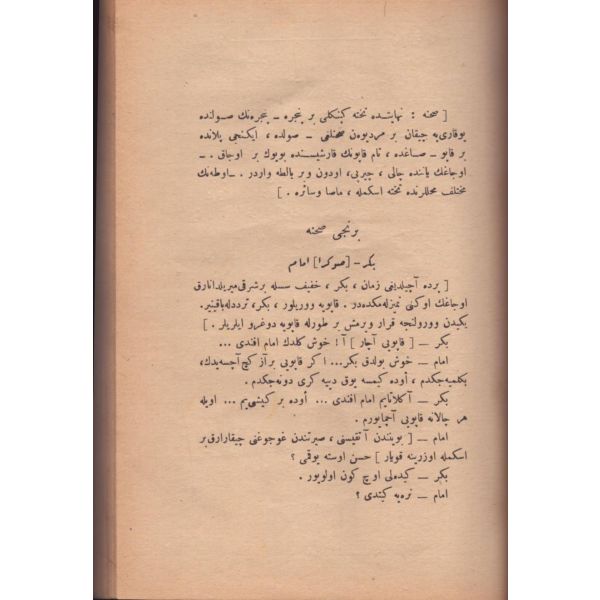 [ صحنه : نهایتده تخته كپنكلی بر پنجره ـ پنجره‌نك صولنده
یوقاری‌یه چیقان بر مردیوه‌ن صحنلغی ـ صولده ، ایكنجی پلانده
بر قاپو ـ صاغده ، تام قاپونك قارشیسنده بویوك بر اوجاق . ـ
اوجاغك یاننده چالی ، چیرپی ، اودون و بر بالطه واردر . ـ اوطه‌نك
مختلف محللرنده تخته اسكمله ، ماصا وسائره . ]
برنجی صحنه
بكر ـ [صوكرا] امام
[ پرده آچیلدیغی زمان ، بكر ، خفیف سسله بر شرقی میریلدانارق
اوجاغك اوكنی تمیزله‌مكده‌در . قاپویه ووریلور ، بكر ، تردد له باقینیر .
یكیدن وورولنجه قرار ویرمش بر طورله قاپویه دوغرو ایلریلر . ]
بكر ـ [ قاپویی آچار ] آ ! خوش كلدك امام افندی ...
امام ـ خوش بولدق بكر ... اكر قاپویی بر آز كچ آچسه‌یدك ،
بكلمیه‌جكدم ، أوده كیمسه یوق دییه كری دونه‌جكدم .
بكر ـ آكلاتایم امام افندی ... أوده بر كیشی‌یم ... اویله
هر چالانه قاپویی آچمایورم .
امام ـ [ بویندن آتقیسنی ، صیرتندن غوجوغنی چیقارارق بر
اسكمله اوزرینه قویار ] حسن اوسته یوقمی ؟
بكر ـ كیده‌لی اوچ كون اولویور .
امام ـ نره‌یه كیتدی ؟